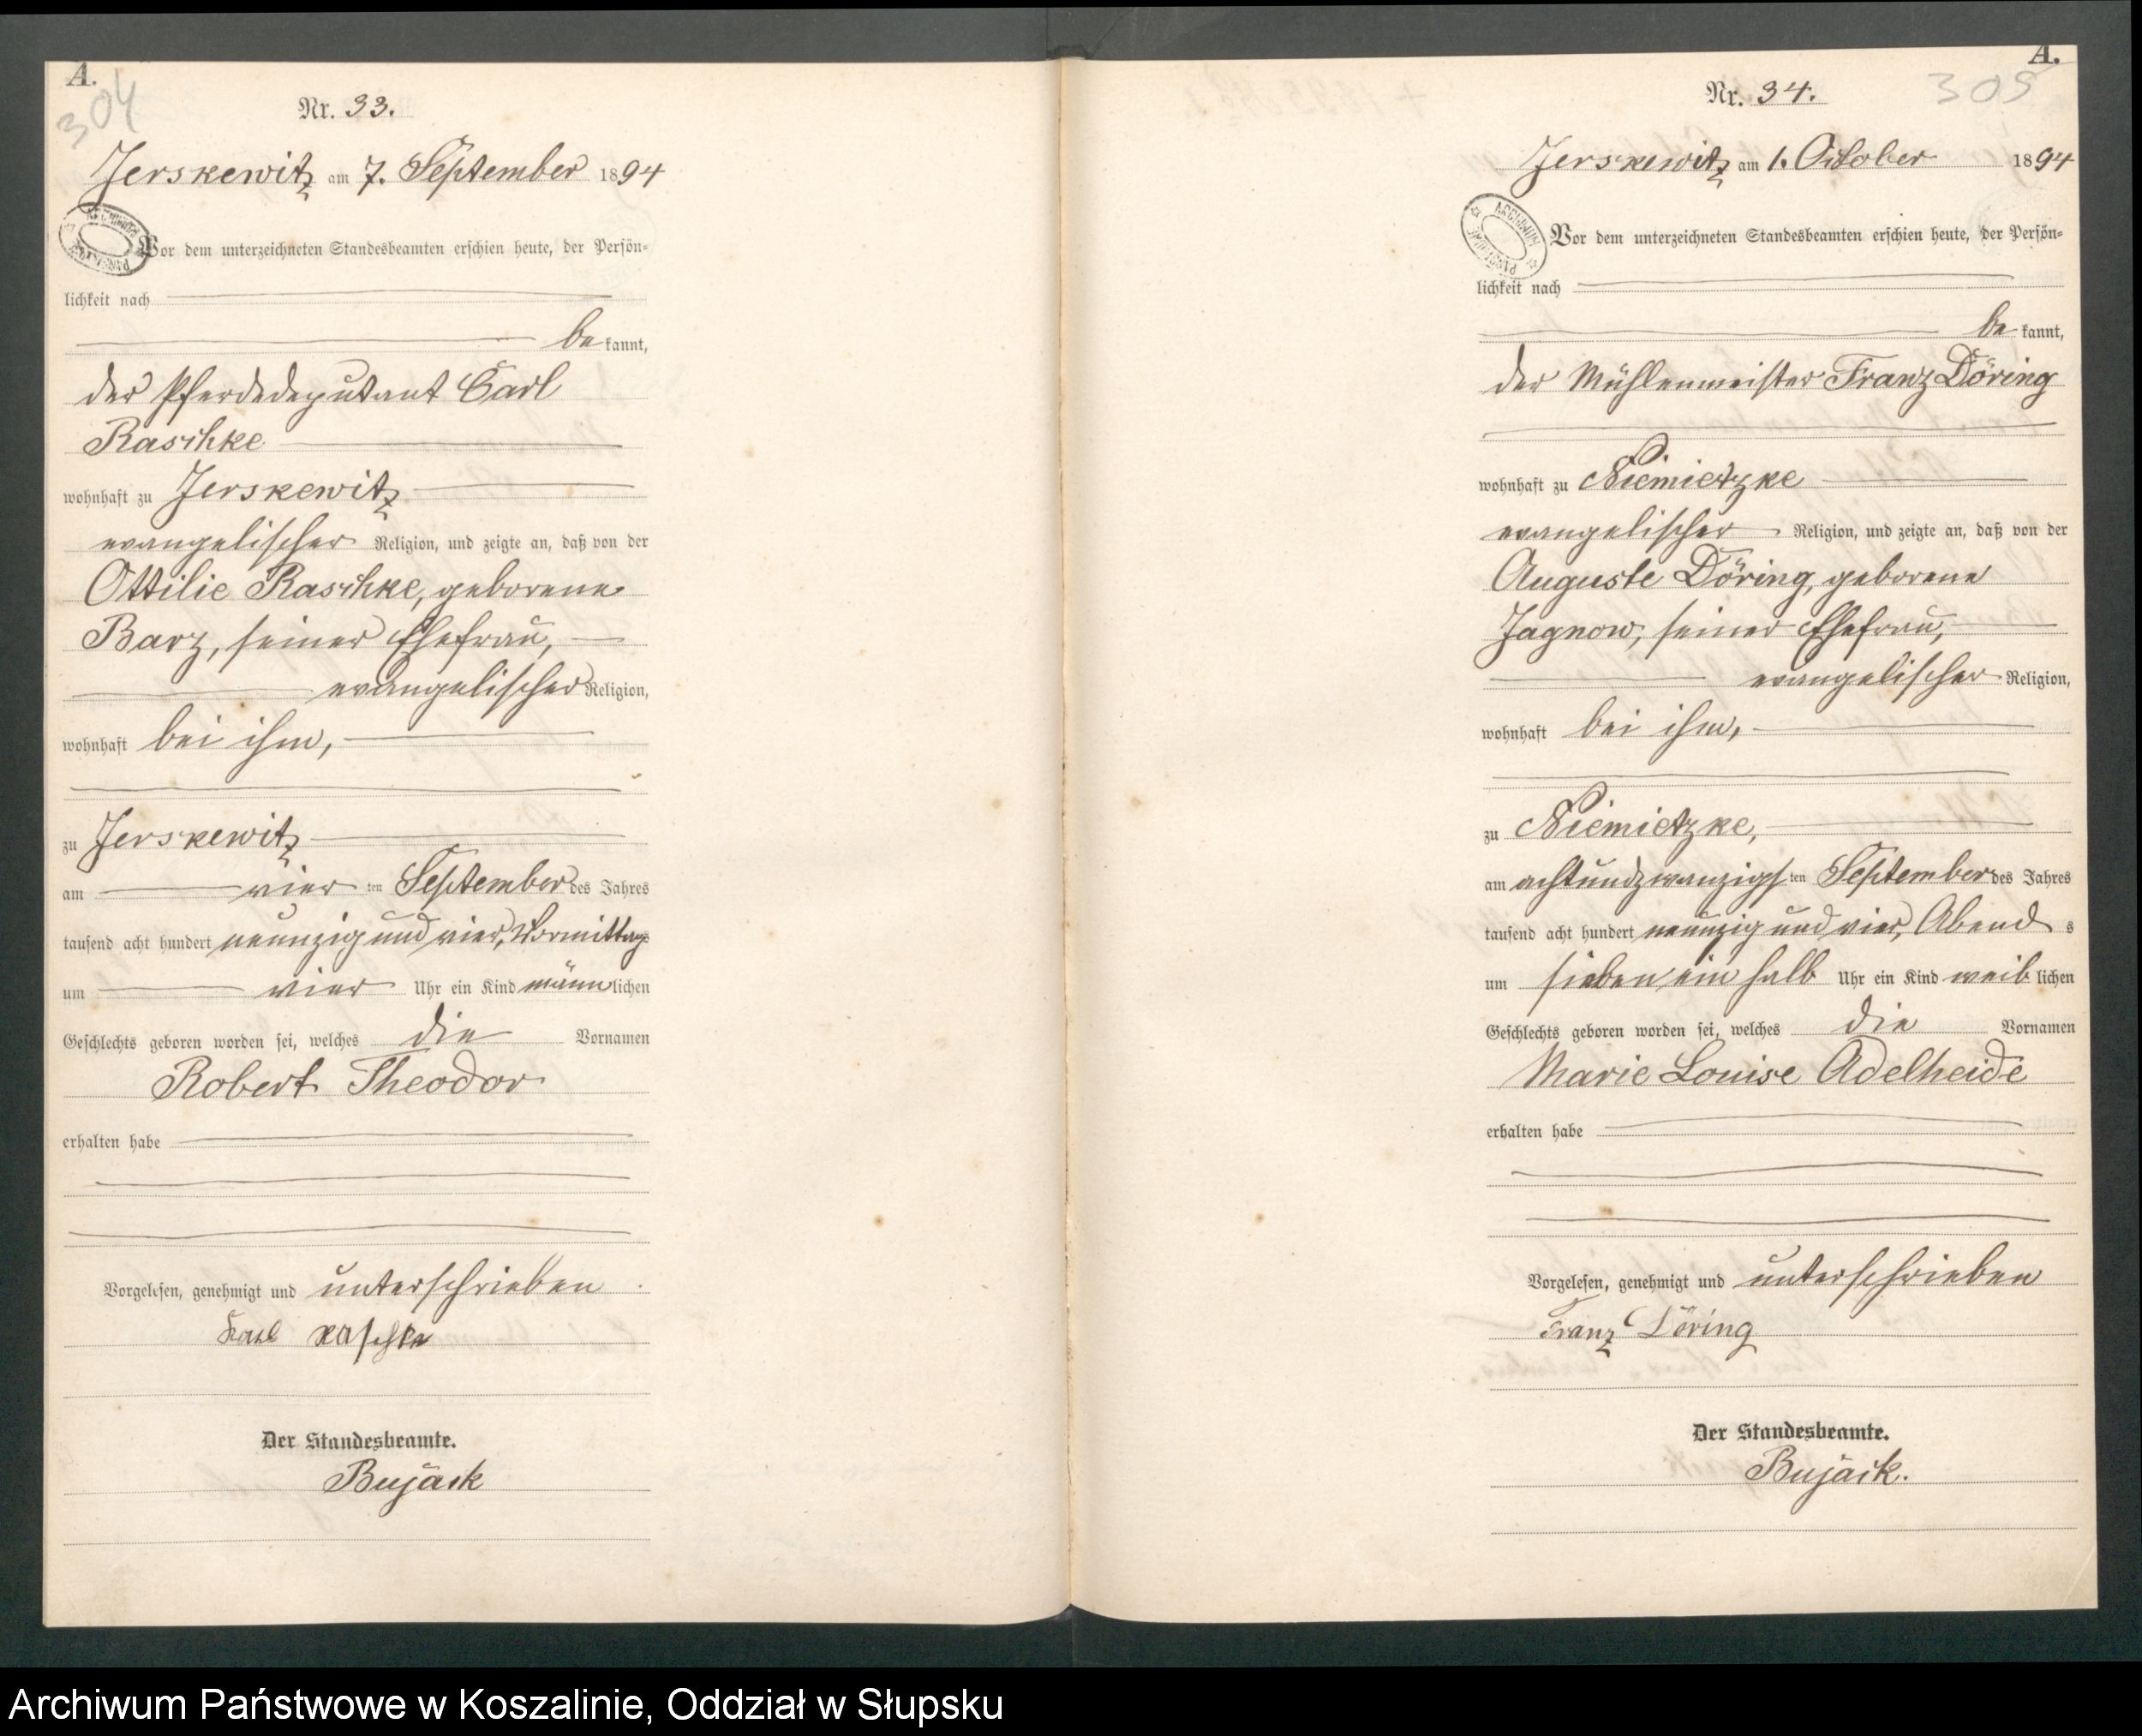 A.
304
Nr. 33.
Jerskewitz am 7. September 1894
ARCHIWUM PAŃSTWOWE
Vor dem unterzeichneten Standesbeamten erschien heute, der Persön=
lichkeit nach
be kannt,
der Pferdedeputant Carl
Raschke
wohnhaft zu Jerskewitz
evangelischer Religion, und zeigte an, daß von der
Ottilie Raschke, geborene
Barz, seiner Ehefrau,
evangelischer Religion,
wohnhaft bei ihm,
zu Jerskewitz
am vier ten September des Jahres
tausend acht hundert neunzig und vier, Vormittags
um vier Uhr ein Kind männlichen
Geschlechts geboren worden sei, welches die Vornamen
Robert Theodor
erhalten habe
Vorgelesen, genehmigt und unterschrieben
Karl Raschke
Der Standesbeamte.
Bujack
A.
305
Nr. 34.
Jerskewitz am 1. October 1894
ARCHIWUM PAŃSTWOWE
Vor dem unterzeichneten Standesbeamten erschien heute, der Persön=
lichkeit nach
be kannt,
der Mühlenmeister Franz Döring
wohnhaft zu Niemietzke
evangelischer Religion, und zeigte an, daß von der
Auguste Döring, geborene
Jagnow, seiner Ehefrau,
evangelischer Religion,
wohnhaft bei ihm,
zu Niemietzke,
am achtundzwanzigsten September des Jahres
tausend acht hundert neunzig und vier, Abend s
um sieben ein halb Uhr ein Kind weib lichen
Geschlechts geboren worden sei, welches die Vornamen
Marie Louise Adelheide
erhalten habe
Vorgelesen, genehmigt und unterschrieben
Franz Döring
Der Standesbeamte.
Bujack.
Archiwum Państwowe w Koszalinie, Oddział w Słupsku